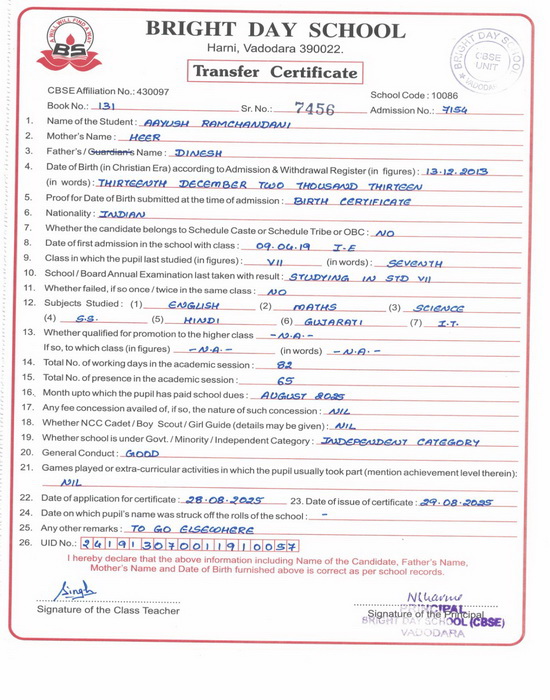 A WILL WILL FIND A WAY
BS
BRIGHT DAY SCHOOL
Harni, Vadodara 390022.
Transfer Certificate
BRIGHT DAY SCHOOL
CBSE
UNIT
VADODARA
CBSE Affiliation No.: 430097
School Code : 10086
Book No.: 131 Sr. No.: 7456 Admission No.: 7154
1. Name of the Student : AAYUSH RAMCHANDANI
2. Mother's Name : HEER
3. Father's / Guardian's Name : DINESH
4. Date of Birth (in Christian Era) according to Admission & Withdrawal Register (in figures) : 13.12.2013
(in words) : THIRTEENTH DECEMBER TWO THOUSAND THIRTEEN
5. Proof for Date of Birth submitted at the time of admission : BIRTH CERTIFICATE
6. Nationality : INDIAN
7. Whether the candidate belongs to Schedule Caste or Schedule Tribe or OBC : NO
8. Date of first admission in the school with class : 09.04.19 I-E
9. Class in which the pupil last studied (in figures) : VII (in words) : SEVENTH
10. School / Board Annual Examination last taken with result : STUDYING IN STD VII
11. Whether failed, if so once / twice in the same class : NO
12. Subjects Studied : (1) ENGLISH (2) MATHS (3) SCIENCE
(4) S.S. (5) HINDI (6) GUJARATI (7) I.T.
13. Whether qualified for promotion to the higher class -N.A.-
If so, to which class (in figures) -N.A.- (in words) -N.A.-
14. Total No. of working days in the academic session : 82
15. Total No. of presence in the academic session : 65
16. Month upto which the pupil has paid school dues : AUGUST 2025
17. Any fee concession availed of, if so, the nature of such concession : NIL
18. Whether NCC Cadet / Boy Scout / Girl Guide (details may be given) : NIL
19. Whether school is under Govt. / Minority / Independent Category : INDEPENDENT CATEGORY
20. General Conduct : GOOD
21. Games played or extra-curricular activities in which the pupil usually took part (mention achievement level therein) :
NIL
22. Date of application for certificate : 28.08.2025 23. Date of issue of certificate : 29.08.2025
24. Date on which pupil's name was struck off the rolls of the school : -
25. Any other remarks : TO GO ELSEWHERE
26. UID No.: 241913070011910057
I hereby declare that the above information including Name of the Candidate, Father's Name,
Mother's Name and Date of Birth furnished above is correct as per school records.
Singh
Signature of the Class Teacher
Signature of the Principal
PRINCIPAL
BRIGHT DAY SCHOOL (CBSE)
VADODARA